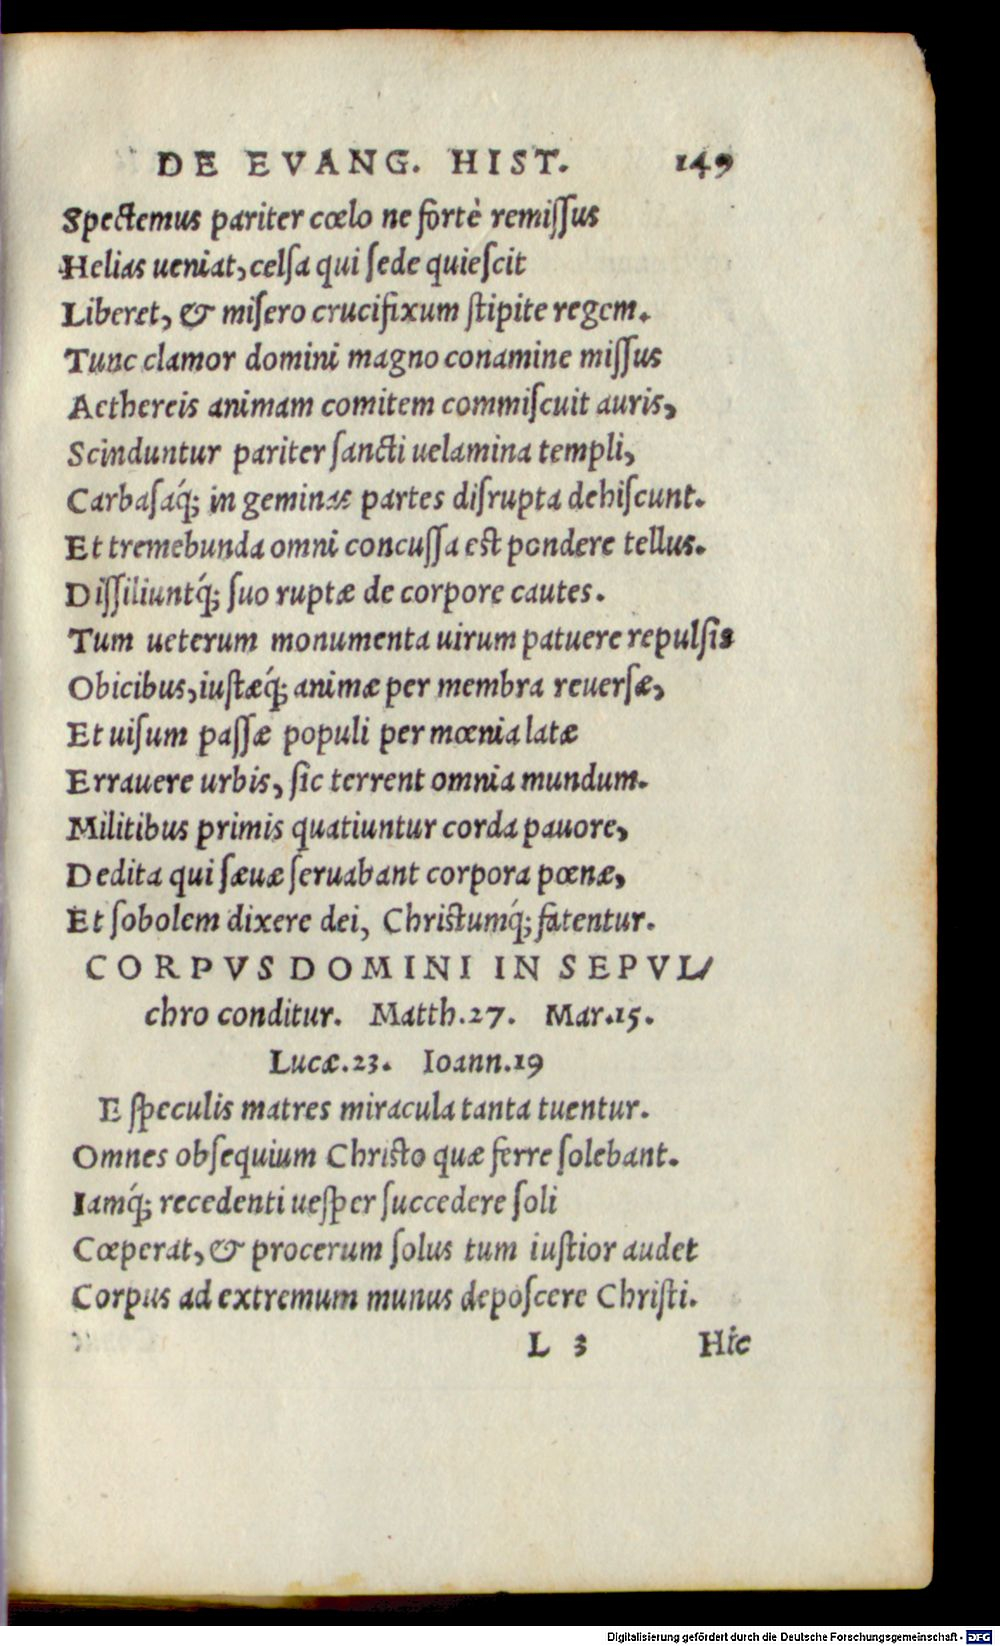 DE EVANG. HIST. 149
Spectemus pariter cœlo ne fortè remiſſus
Helias ueniat, celſa qui ſede quieſcit
Liberet, & miſero crucifixum ſtipite regem.
Tunc clamor domini magno conamine miſſus
Aethereis animam comitem commiſcuit auris,
Scinduntur pariter ſancti uelamina templi,
Carbaſaq́; in geminas partes diſrupta dehiſcunt.
Et tremebunda omni concuſſa eſt pondere tellus.
Diſſiliuntq́; ſuo ruptæ de corpore cautes.
Tum ueterum monumenta uirum patuere repulſis
Obicibus, iuſtæq́; animæ per membra reuerſæ,
Et uiſum paſſæ populi per mœnia latæ
Errauere urbis, ſic terrent omnia mundum.
Militibus primis quatiuntur corda pauore,
Dedita qui ſæuæ ſeruabant corpora pœnæ,
Et ſobolem dixere dei, Chriſtumq́; fatentur.
CORPVS DOMINI IN SEPVL/
chro conditur. Matth.27. Mar.15.
Lucæ.23. Ioann.19
E ſpeculis matres miracula tanta tuentur.
Omnes obſequium Chriſto quæ ferre ſolebant.
Iamq́; recedenti ueſper ſuccedere ſoli
Cœperat, & procerum ſolus tum iuſtior audet
Corpus ad extremum munus depoſcere Chriſti.
L 3 Hic
Digitalisierung gefördert durch die Deutsche Forschungsgemeinschaft - DFG